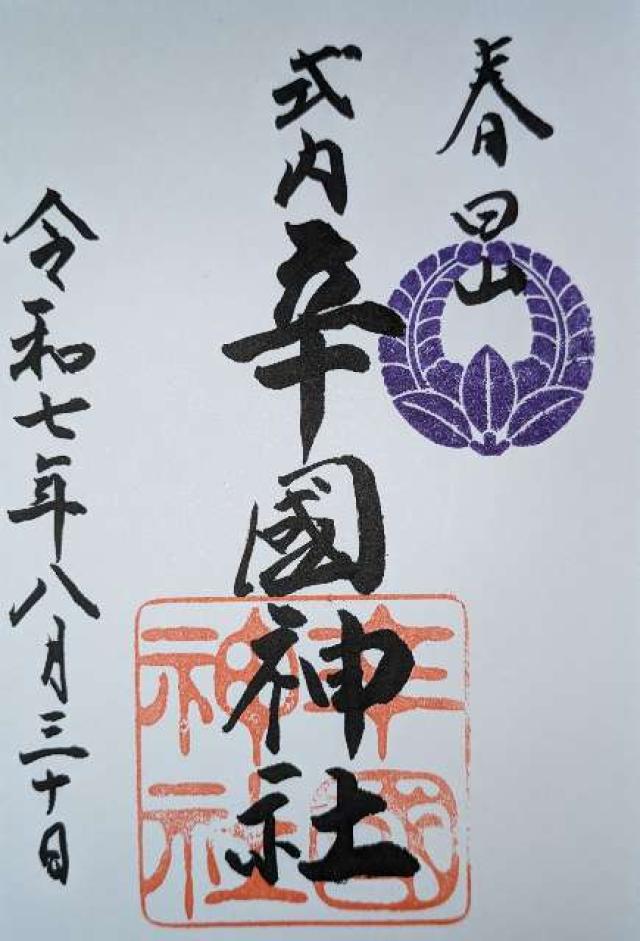 春日山
式内辛國神社
令和七年八月三十日
辛國神社